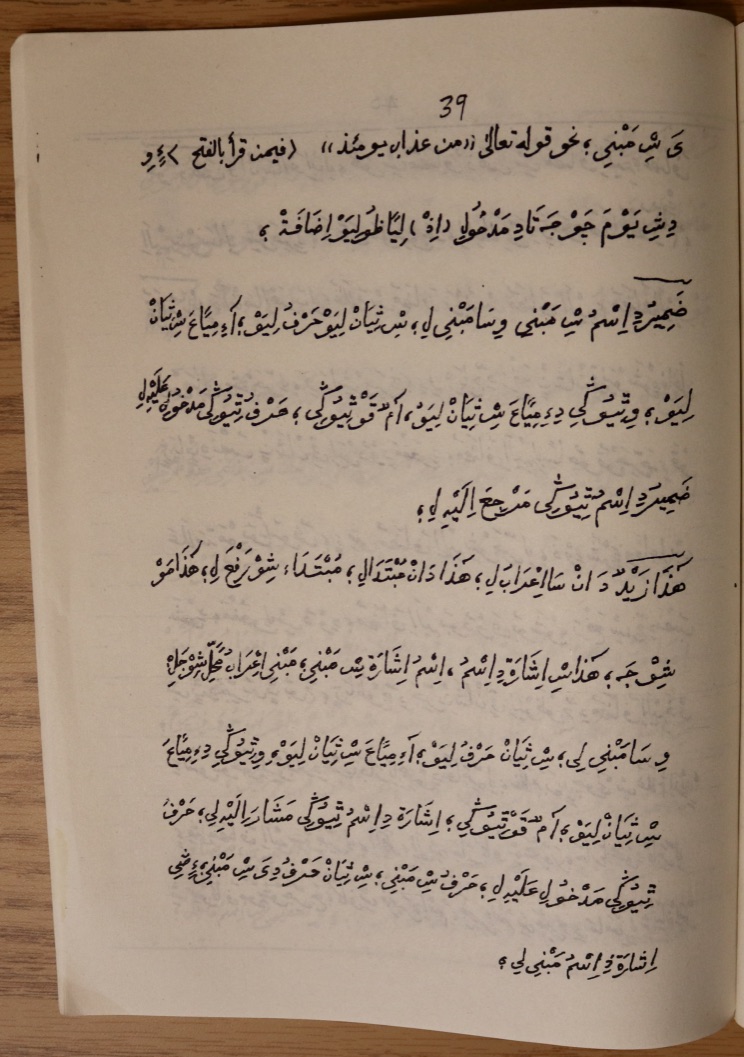 39
ىَ سِْ مَبْنِي ؛ نحو قوله تعالى ((من عذاب يومئذ)) (فيمن قرأ بالفتح) ءٍ وِ
دِشِ يَوْمَ جَوْ جَ تَا دِ مَدْخُولِ (اِذْ) لِيًا ظُو لِيَوْ اِضَافَةْ ؛
ضَمِيرْ دِ اِسْمُ سِْ مَبْنِي وِ سَا مَبْنِي لِ ؛ سِْ ثِيَانْ لِيَوْ حَرْفُ لِيَوْ ؛ آءِ مِيَّاعَ سِْ ثِيَانْ
لِيَوْ ؛ وِ ثِيُوݣِي دِءِ مِيَّاعَ سِْ ثِيَانْ لِيَوْ ، اَمَّ قَوْ ثِيُوݣِي ؛ حَرْفُ ثِيُوݣِي مَدْخُولُ عَلَيْهِ لِ
ضَمِيرْ دِ اِسْمُ ثِيُوݣِي مَرْجِعَ اِلَيْهِ لِ ؛
هٰذَا زَيْدٌ دَانْ سَا اِعْرَابَ لِ ؛ هٰذَا دَانْ مُبْتَدَا لِ ؛ مُبْتَدَاء شِوْ رَفْعَ لِ ؛ هٰذَا مَوْ
شِوْ جَ ؛ هٰذَا سِْ اِشَارَةْ دِ اِسْمُ ، اِسْمُ اِشَارَةْ سِْ مَبْنِي ؛ مَبْنِي اِعْرَابُ مَحَلِّ شِوْ جَ لِ
وِ سَا مَبْنِي لِي ؛ سِْ ثِيَانْ حَرْفُ لِيَوْ ؛ آءِ مِيَّاعَ سِْ ثِيَانْ لِيَوْ ؛ وِ ثِيُوݣِي دِءِ مِيَّاعَ
سِْ ثِيَانْ لِيَوْ ؛ اَمَّ قَوْ ثِيُوݣِي ؛ اِشَارَةْ دِ اِسْمُ ثِيُوݣِي مَشَارَ اِلَيْهِ لِي ؛ حَرْفُ
ثِيُوݣِي مَدْخُولِ عَلَيْهِ لِ ؛ حَرْفُ سِْ مَبْنِي ؛ سِْ ثِيَانْ حَرْفُ دِىَ سِْ مَبْنِي ؛
اِشَارَةْ دِ اِسْمُ مَبْنِي لِي ؛